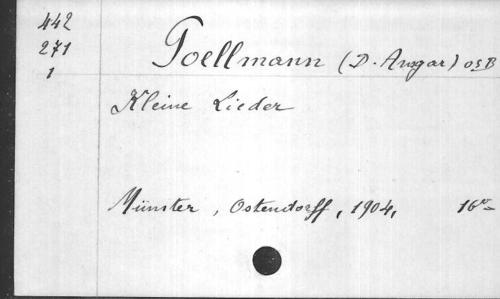 442
271
1
Poellmann (D. Ansgar) OSB
Kleine Lieder
Münster, Ostendorff, 1904, 16º